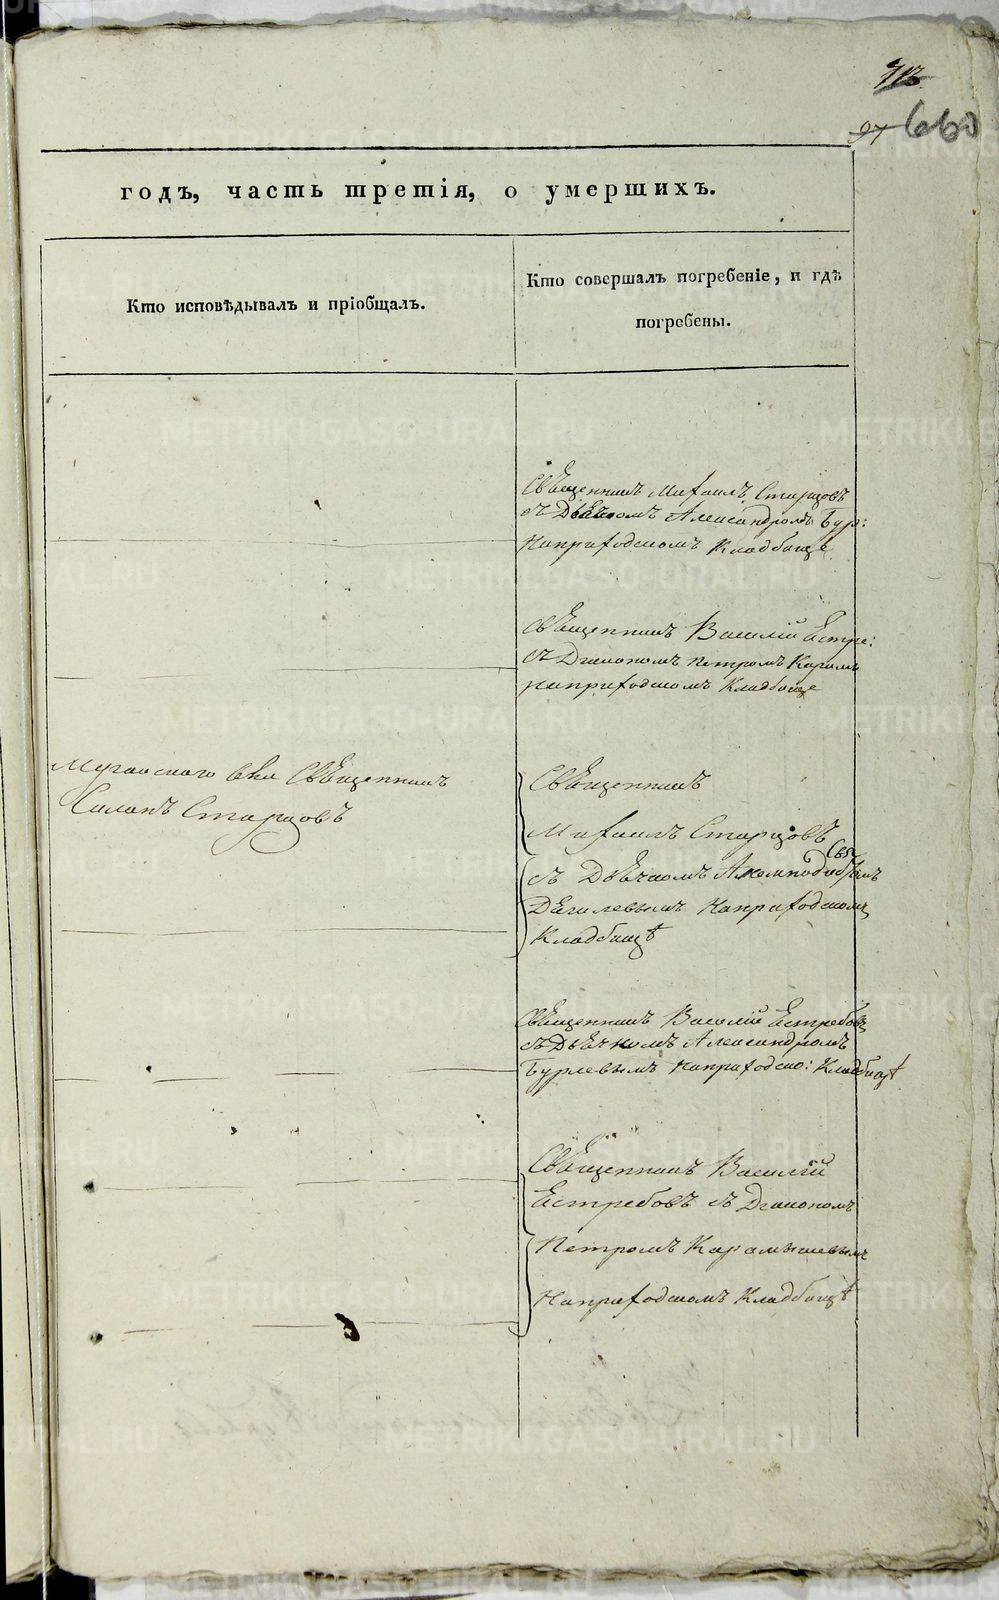 97 660
годъ, часть третія, о умершихъ.
Кто исповѣдывалъ и пріобщалъ.
Кто совершалъ погребеніе, и гдѣ
погребены.
Священникъ Михаилъ Старцовъ
съ Дьячкомъ Александромъ Бур:
На приходскомъ Кладбище
священникъ Василій Естре:
съ Дьякономъ Петромъ Карам
на приходскомъ Кладбище
Священникъ
Старцовъ
Священникъ
Михаилъ Старцовъ
съ Дьячкомъ
Дѣгилевымъ На приходскомъ
Кладбищѣ
Священникъ Василій Естребовъ
съ Дьячкомъ Александромъ
Бурлевымъ на приходско: Кладбищѣ
Священникъ Василій
Естребовъ съ Дьякономъ
Петромъ Карамышевымъ
На приходскомъ Кладбищѣ
METRIKI.GASO-URAL.RU